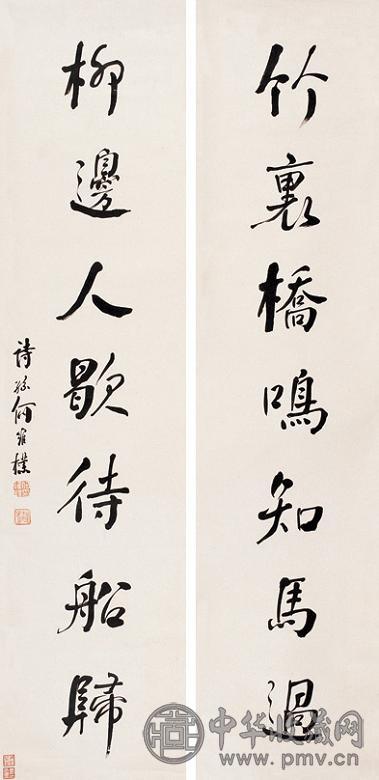 竹裏橋鳴知馬過
柳邊人歇待船歸
詩孫何維樸
中华收藏网
www.pmv.cn